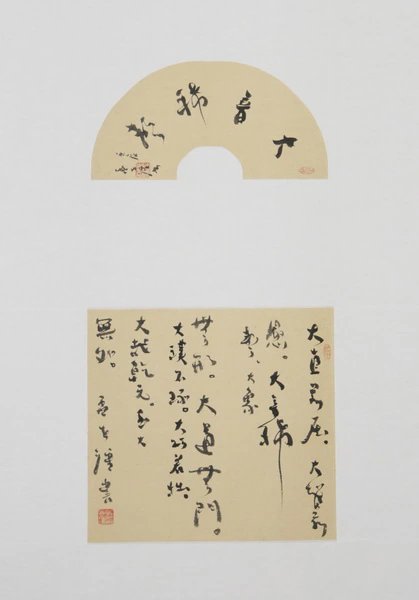 大音稀聲
大直若屈。大智若
愚。大音稀
聲。大象
無形。大道無門。
大璞不琢。大巧若拙。
大哉乾元。至大
無外。書